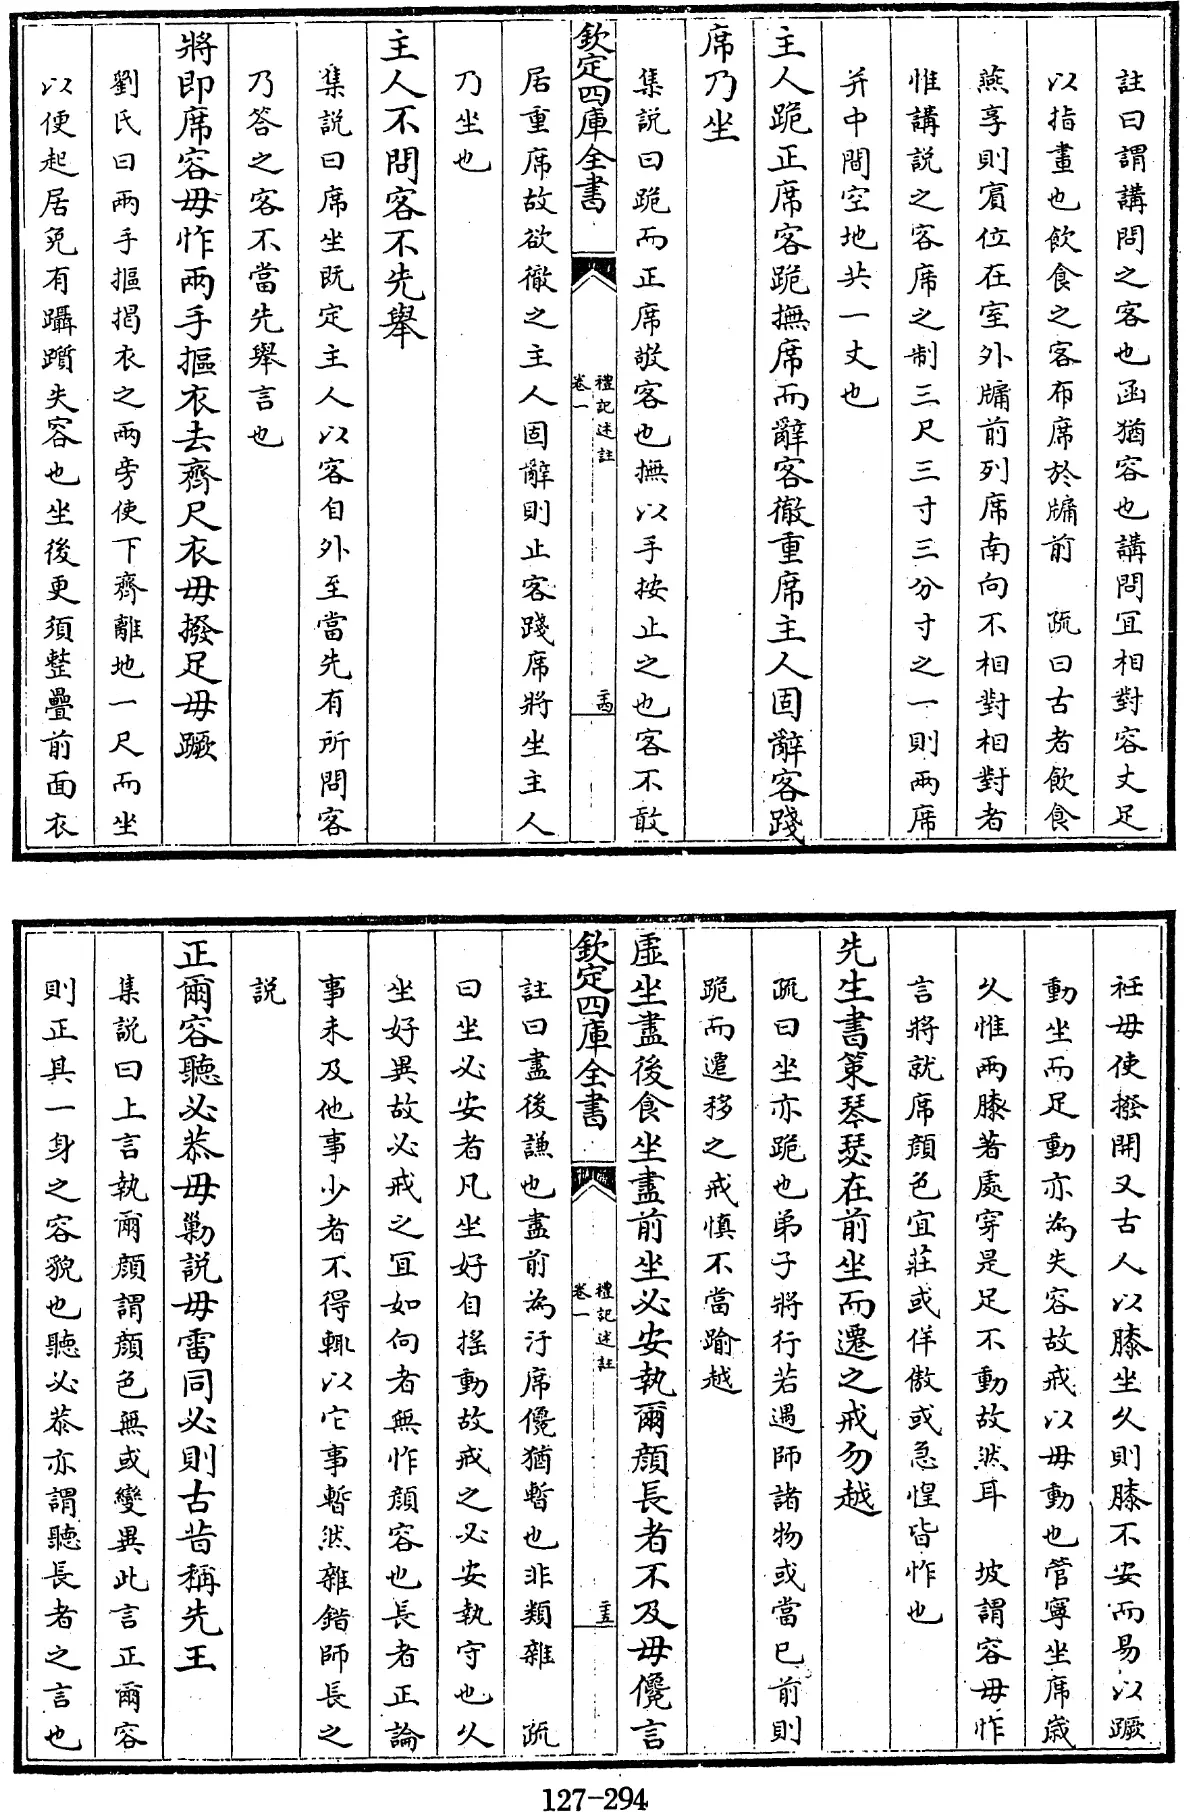 註曰謂講問之客也函猶容也講問宜相對容丈足
以指畫也飲食之客布席於牖前　疏曰古者飲食
燕享則賔位在室外牖前列席南向不相對相對者
惟講説之客席之制三尺三寸三分寸之一則兩席
并中間空地共一丈也
主人跪正席客跪撫席而辭客徹重席主人固辭客踐
席乃坐
集説曰跪而正席敬客也撫以手按止之也客不敢
欽定四庫全書
禮記述註
卷一
二十四
居重席故欲徹之主人固辭則止客踐席將坐主人
乃坐也
主人不問客不先舉
集説曰席坐既定主人以客自外至當先有所問客
乃答之客不當先舉言也
將即席容毋怍兩手摳衣去齊尺衣毋撥足毋蹶
劉氏曰兩手摳揭衣之兩旁使下齊離地一尺而坐
以便起居免有躡躓失容也坐後更須整疊前面衣
衽毋使撥開又古人以膝坐久則膝不安而易以蹶
動坐而足動亦為失容故戒以毋動也管寧坐席歲
久惟兩膝著處穿是足不動故然耳　坡謂容毋怍
言將就席顔色宜莊或佯傲或急惶皆怍也
先生書策琴瑟在前坐而遷之戒勿越
疏曰坐亦跪也弟子將行若遇師諸物或當已前則
跪而遷移之戒慎不當踰越
虚坐盡後食坐盡前坐必安執爾顔長者不及毋儳言
欽定四庫全書
禮記述註
卷一
二十五
註曰盡後謙也盡前為汙席儳猶暫也非類雜　疏
曰坐必安者凡坐好自搖動故戒之必安執守也久
坐好異故必戒之宜如向者無怍顔容也長者正論
事未及他事少者不得輒以它事暫然雜錯師長之
説
正爾容聽必恭毋勦説毋雷同必則古昔稱先王
集説曰上言執爾顔謂顔色無或變異此言正爾容
則正其一身之容貌也聽必恭亦謂聽長者之言也
127-294